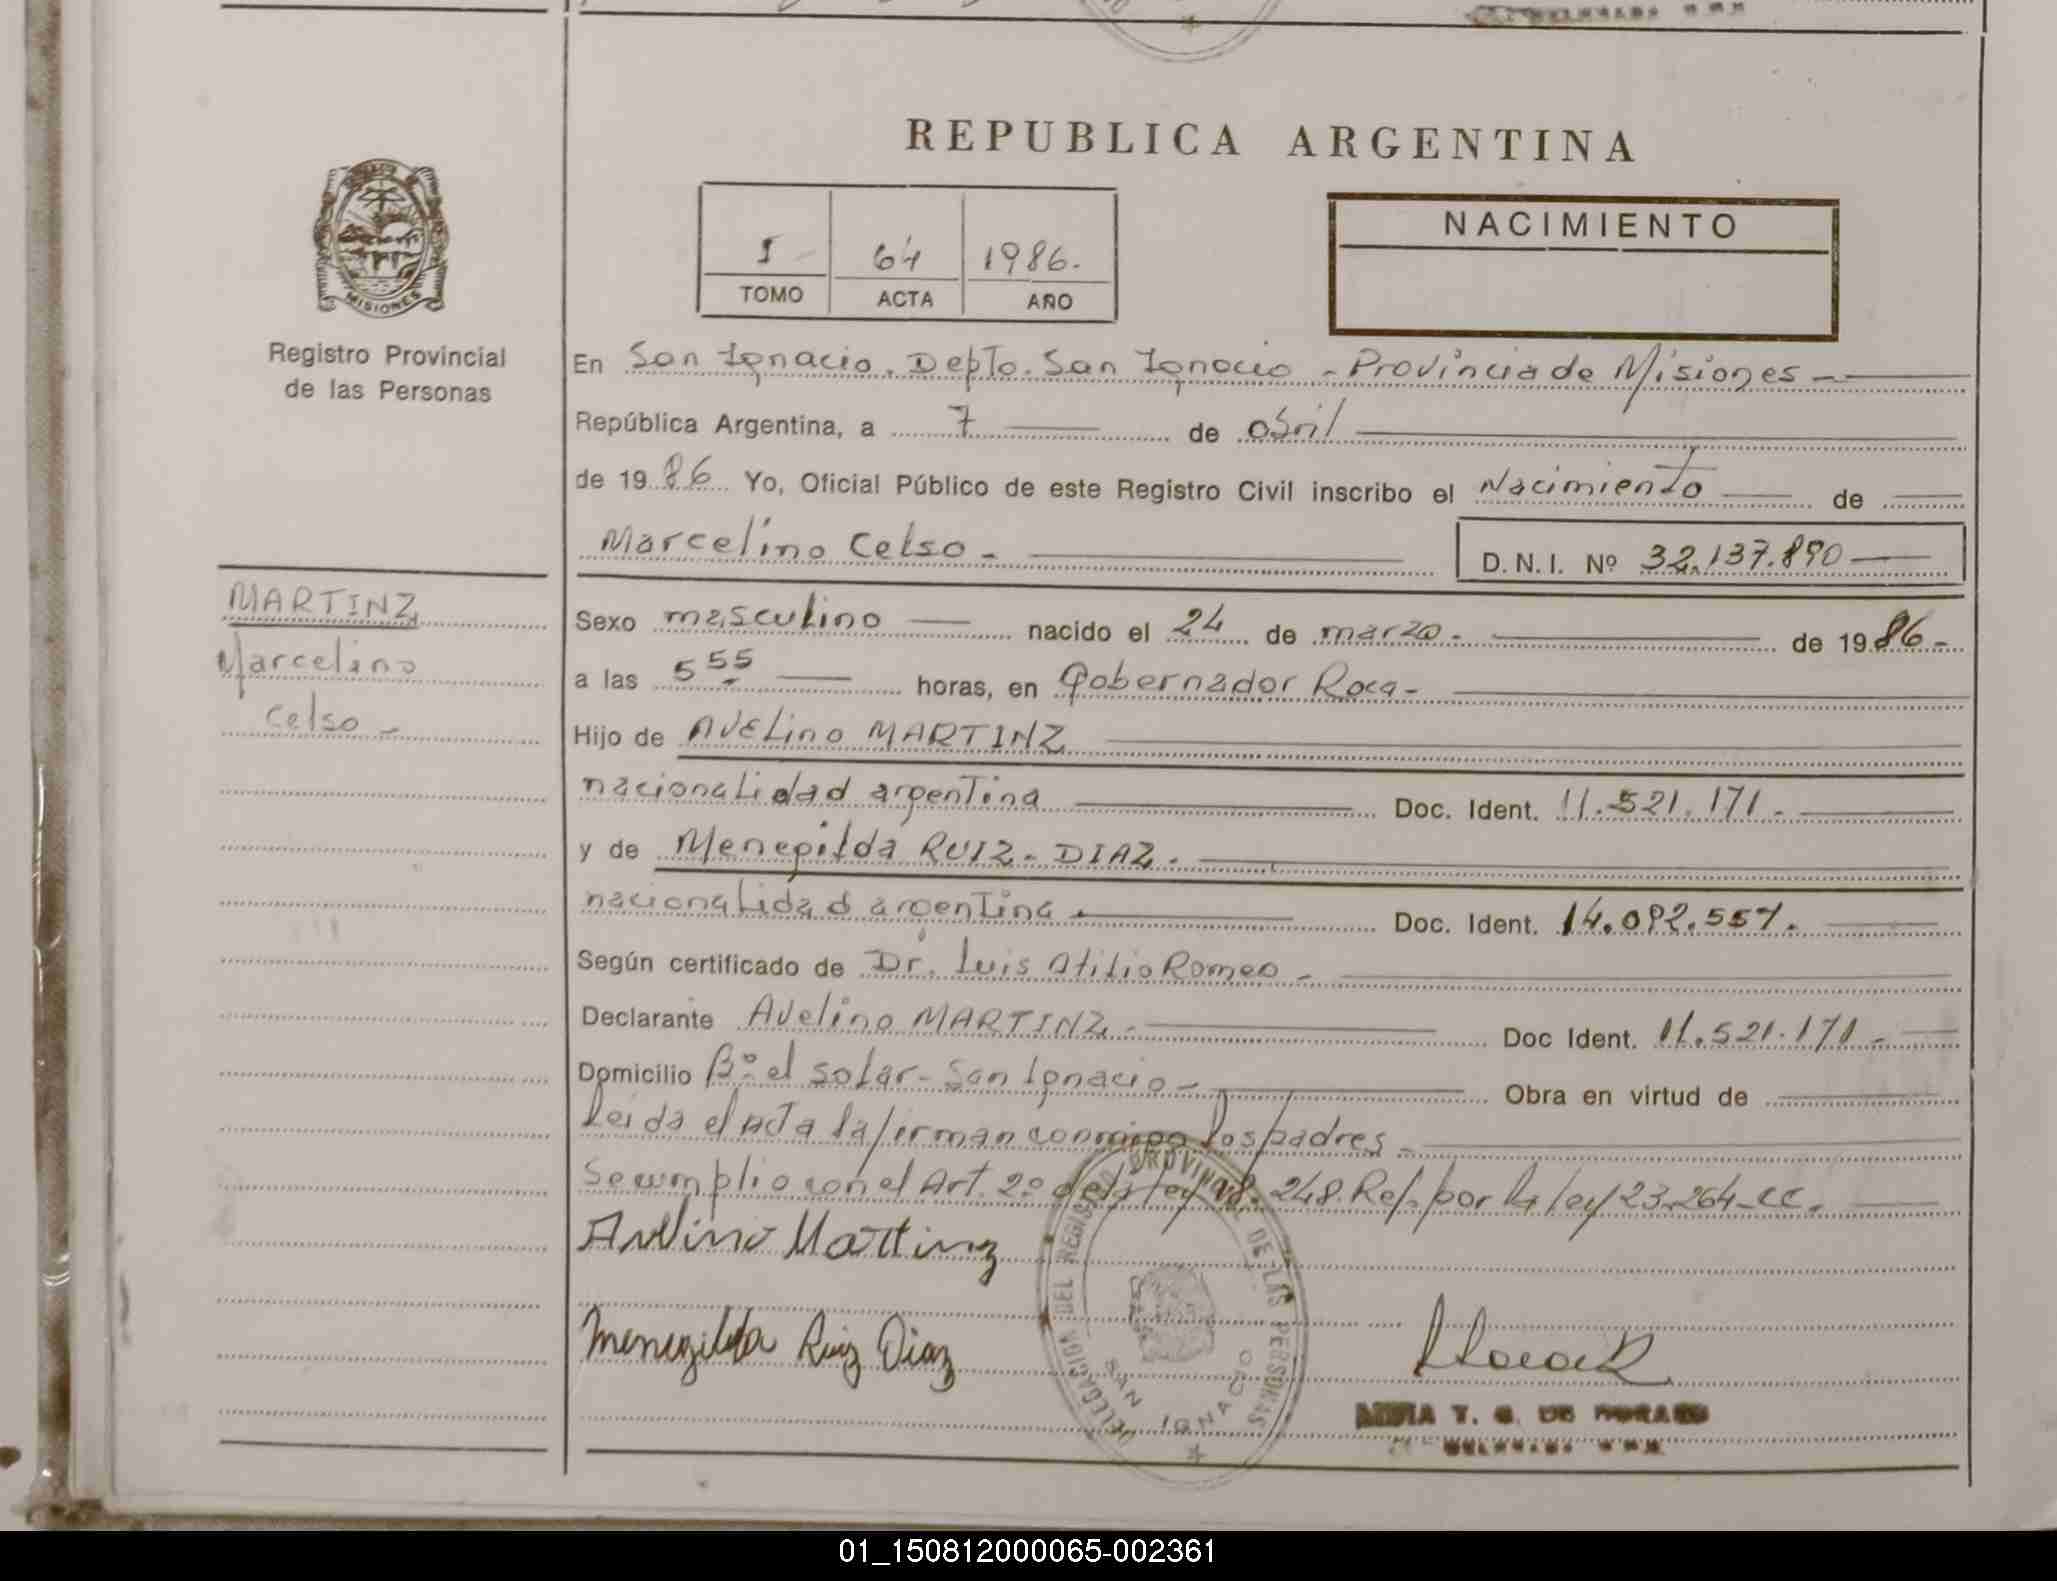 REPUBLICA ARGENTINA
I 64 1986.
TOMO ACTA AÑO
NACIMIENTO
MISIONES
Registro Provincial
de las Personas
En San Ignacio. Depto. San Ignacio - Provincia de Misiones -
República Argentina, a 7 de abril
de 1986 Yo, Oficial Público de este Registro Civil inscribo el Nacimiento de
Marcelino Celso - D.N.I. Nº 32.137.890
MARTINZ
Marcelino
Celso -
Sexo masculino nacido el 24 de marzo - de 1986 -
a las 5 55 horas, en Gobernador Roca -
Hijo de Avelino MARTINZ
nacionalidad argentina Doc. Ident. 11.521.171 -
y de Menegilda RUIZ - DIAZ -
nacionalidad argentina - Doc. Ident. 14.092.557.
Según certificado de Dr. Luis Atilio Romeo -
Declarante Avelino MARTINZ - Doc Ident. 11.521.171 -
Domicilio Bº el solar - San Ignacio - Obra en virtud de
Leida el Acta la firman conmigo los padres -
Se cumplio con el Art. 2º de la ley 18.248. Ref. por la ley 23.264 - CC.
Avelino Martinz
Menegilda Ruiz Diaz
DELEGACION DEL REGISTRO PROVINCIAL DE LAS PERSONAS
SAN IGNACIO
T. G. DE MORALES
01_150812000065-002361